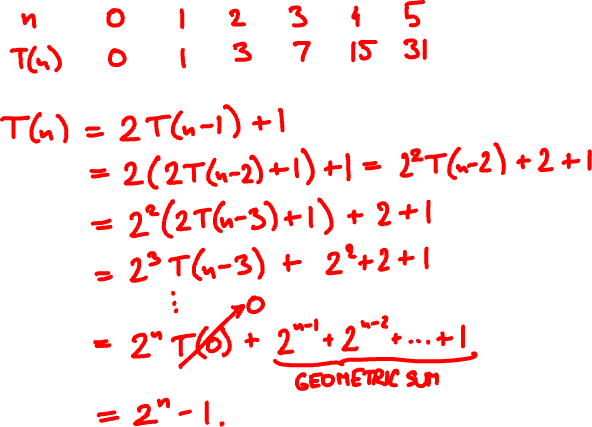 n 0 1 2 3 4 5
T(n) 0 1 3 7 15 31
T(n) = 2T(n-1)+1
= 2(2T(n-2)+1)+1 = 2²T(n-2)+2+1
= 2²(2T(n-3)+1) + 2+1
= 2³T(n-3) + 2²+2+1
⋮
0
= 2ⁿ T(0) + 2ⁿ⁻¹+2ⁿ⁻²+...+1
GEOMETRIC SUM
= 2ⁿ-1.